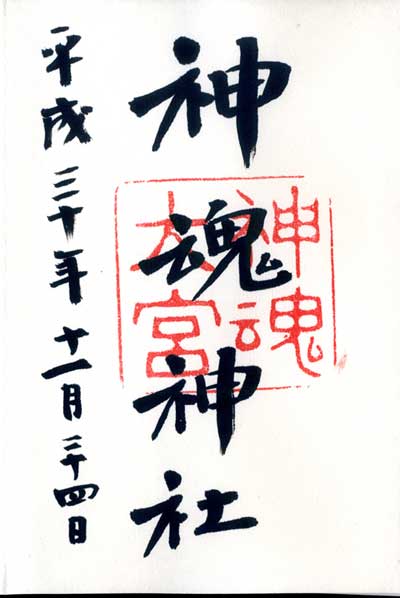 神魂神社
神魂
大宮
平成三十年十一月二十四日